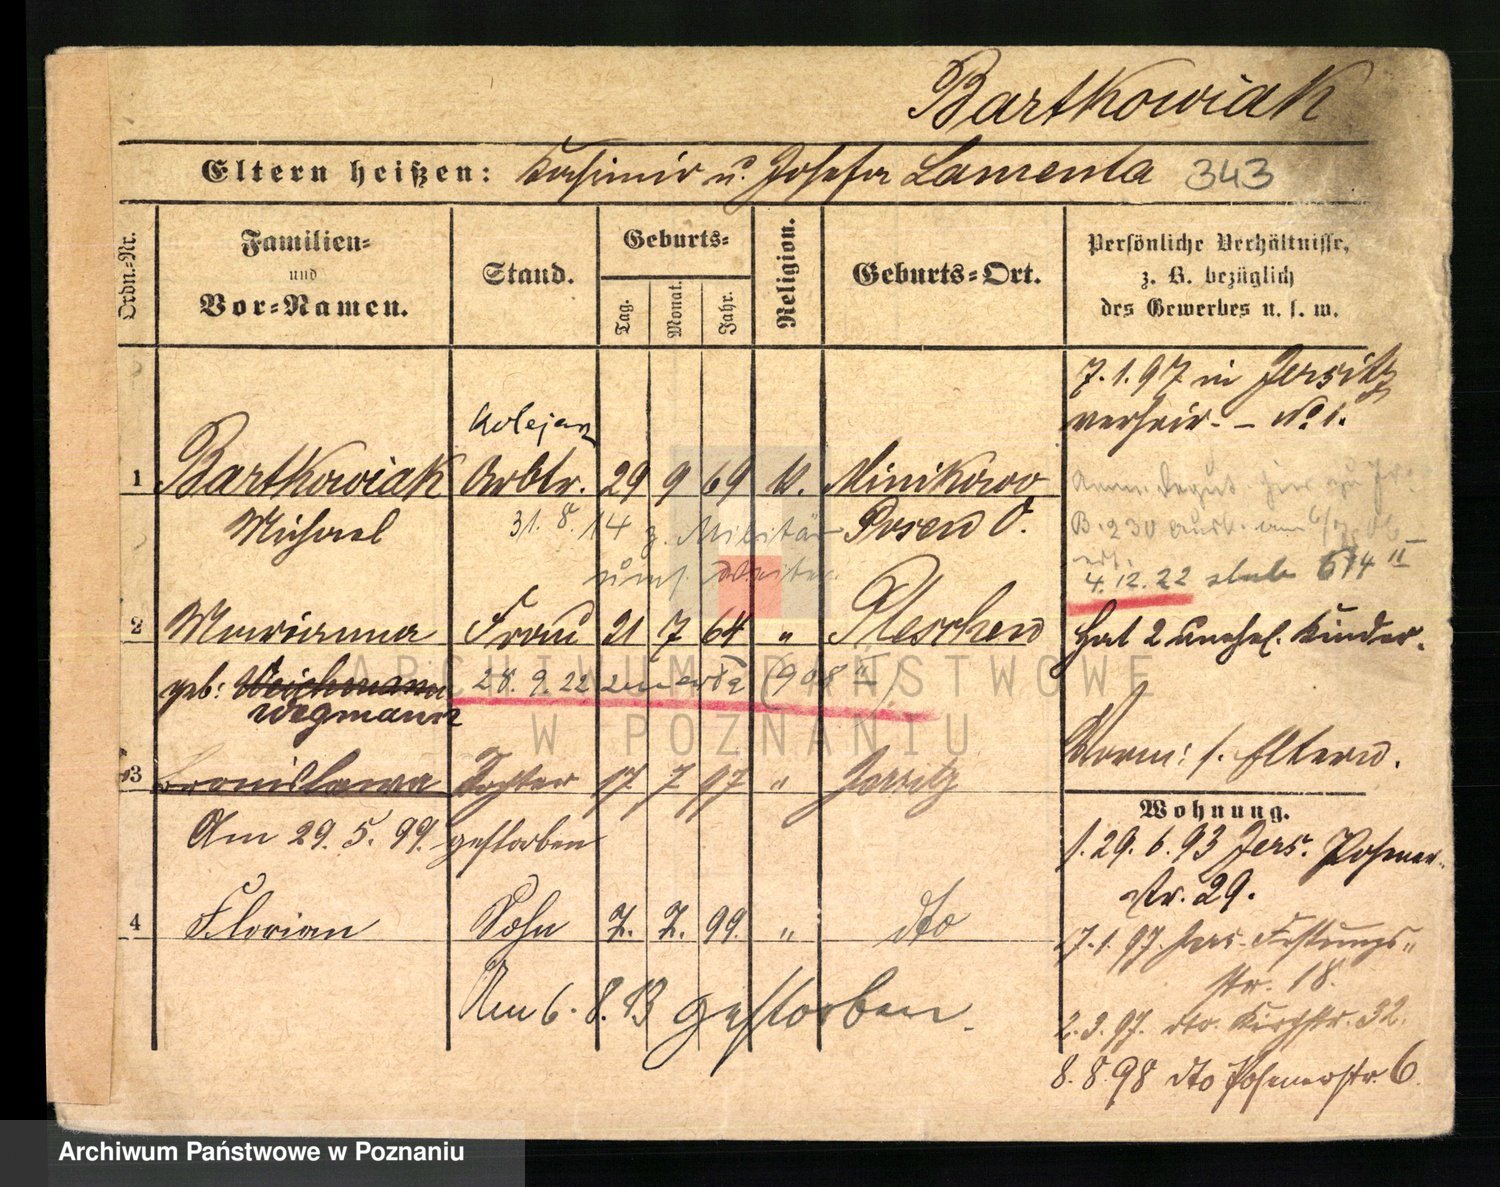 Bartkowiak
Eltern heißen: Kasimir u. Josefa Lamenta 343
Ordn.-Nr.
Familien- und Vor-Namen.
Stand.
Geburts-
Tag. Monat. Jahr.
Religion.
Geburts-Ort.
Persönliche Verhältnisse,
z. B. bezüglich
des Gewerbes u. s. w.
7.1.97 in Jersitz
verheir. - No 1.
Kolejarz
1 Bartkowiak Arbtr. 29 9 69 k. Minikowo
Michael 31. 8. 14 z. Militär Posen O.
B. 230
4.12.22 614 II
2 Marianna Frau 21 7 64 " Pleschen
Hat 2 unehel. Kinder.
geb: Weichmann 28. 9. 22 zmarła (908 II)
Wegmann
Vorm: s. Eltern.
3 Bronislawa Tochter 17. 7 97 " Jersitz
Am 29. 5. 99. gestorben
Wohnung.
1. 29. 6. 93 Jers. Posener-
str. 29.
4 Florian Sohn 7. 7. 99. " dto
7.1.97. Jers. Festungs-
str. 18.
Am 6. 8. 13 gestorben.
2.3.97. dto. Kirchstr. 32.
8.8.98 dto Posenerstr. 6.
ARCHIWUM PAŃSTWOWE
W POZNANIU
Archiwum Państwowe w Poznaniu